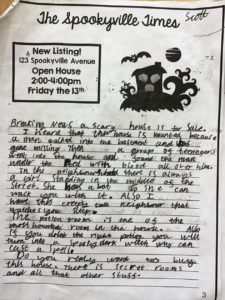 The Spookyville Times
Scott
New Listing!
123 Spookyville Avenue
Open House
2:00-4:00pm
Friday the 13th
Breaking News a scary house is for sale.
I heard that the house is haunted because
a man walked into the basement and
gone missing then a group of teenagers
went into the house and found the man
under the bed with blood all over him.
In the neighbourhood there is always
a girl standing in the middle of the
street. She has a bat so she can
wack you with it. Also I
have this creepy neighbor that
watches you sleep.
The potion room is one of the
most haunted room in the house. Also
if you drink the right potion you will
turn into a spooky witch who can
cast a spell.
Do you really want to buy
this house. There is secret rooms
and all that other stuff.
3